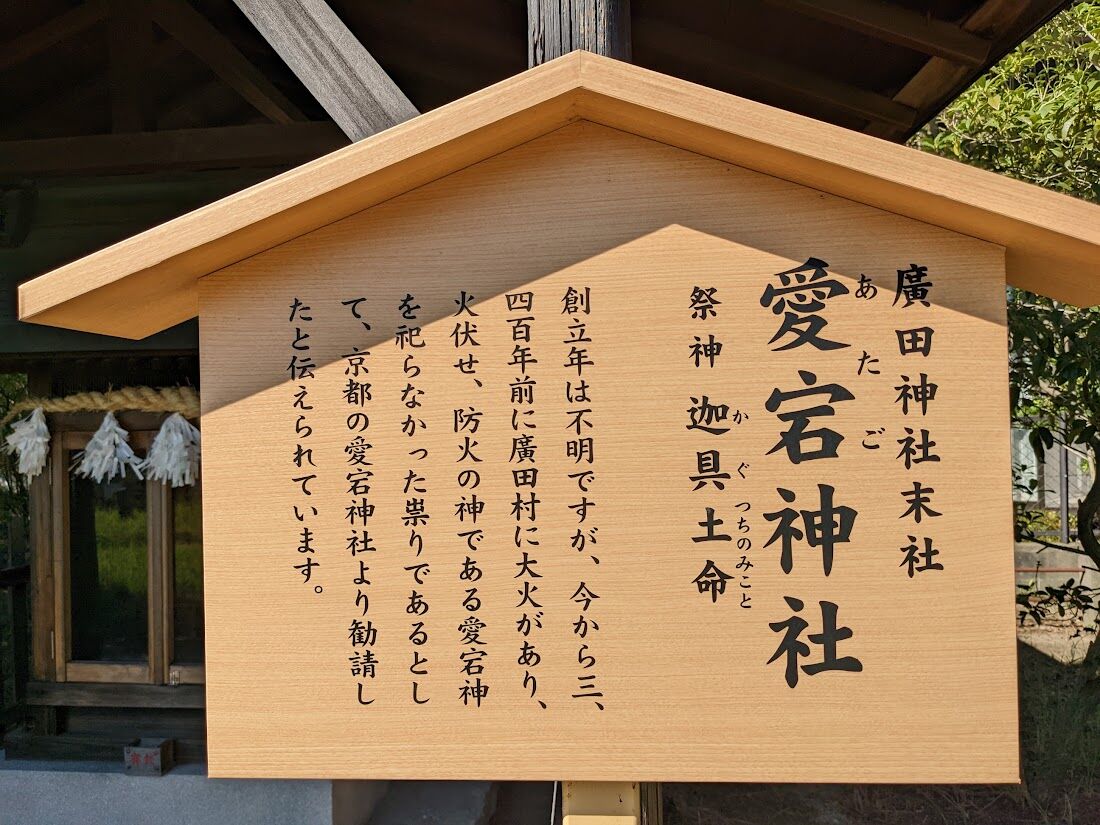 廣田神社末社
あたご
愛宕神社
かぐつちのみこと
祭神 迦具土命
創立年は不明ですが、今から三、
四百年前に廣田村に大火があり、
火伏せ、防火の神である愛宕神
を祀らなかった祟りであるとし
て、京都の愛宕神社より勧請し
たと伝えられています。